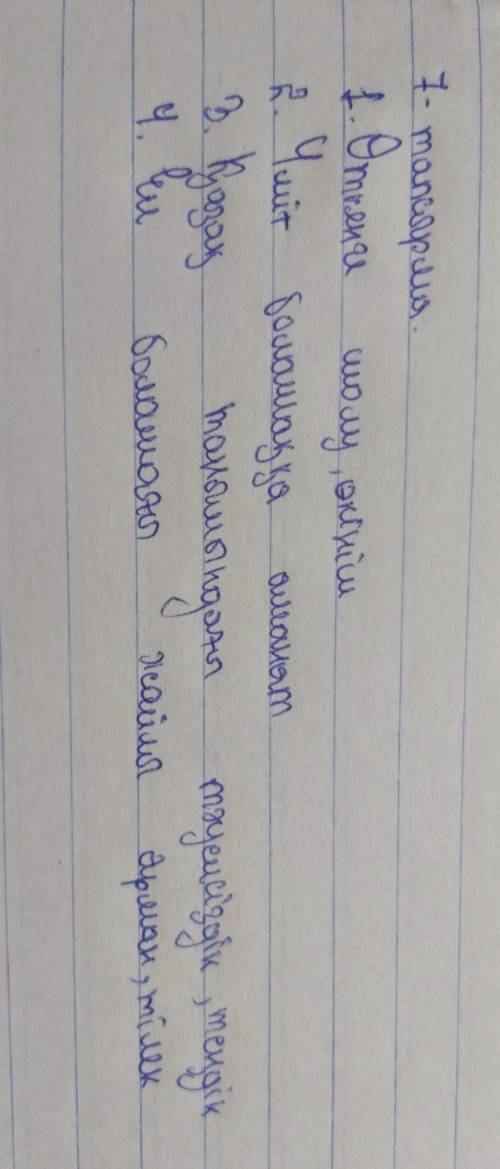 7-тапсырма.
1. Өткенге шолу, өкініш
2. Үміт болашаққа аманат
3. Қазақ танымындағы тәуелсіздік, теңдік
4. Ел болашағы жайлы арман, тілек